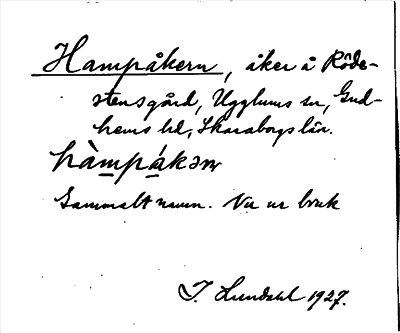 Hampåkern, åker å Röde-
stensgård, Ugglums sn, Gud-
hems hd, Skaraborgs län.
hàmpákəɳ
Gammalt namn. Nu ur bruk
J. Lundahl 1927.